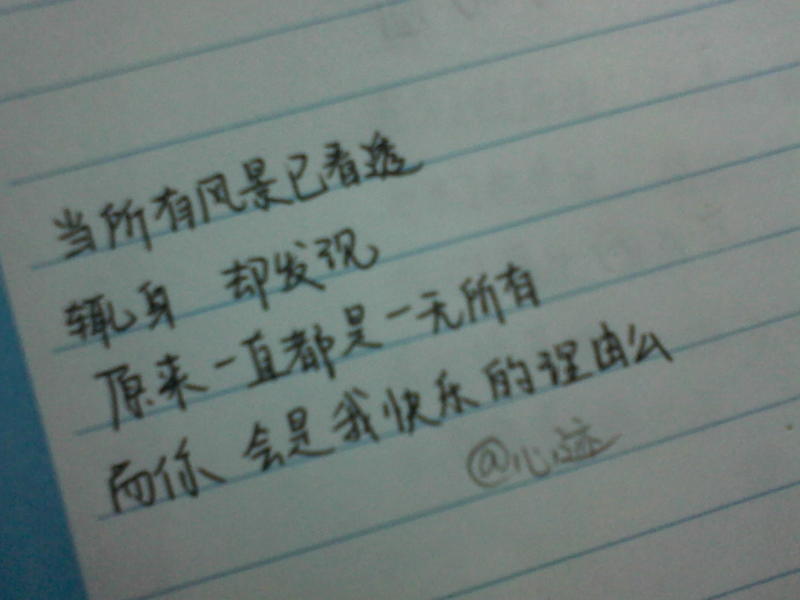 当所有风景已看透
辄身 却发现
原来一直都是一无所有
而你 会是我快乐的理由么
@心迹